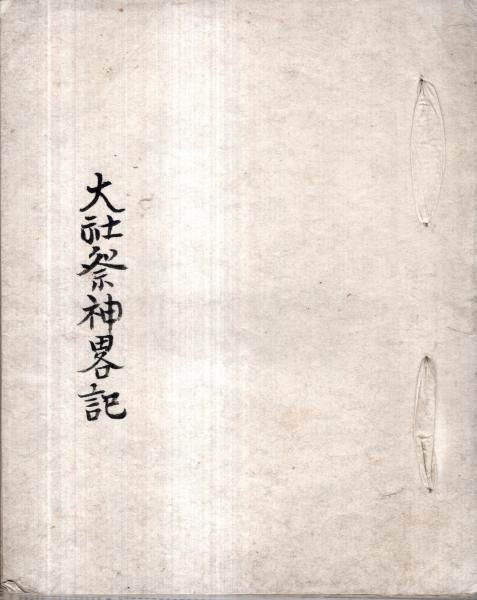 大社祭神畧記